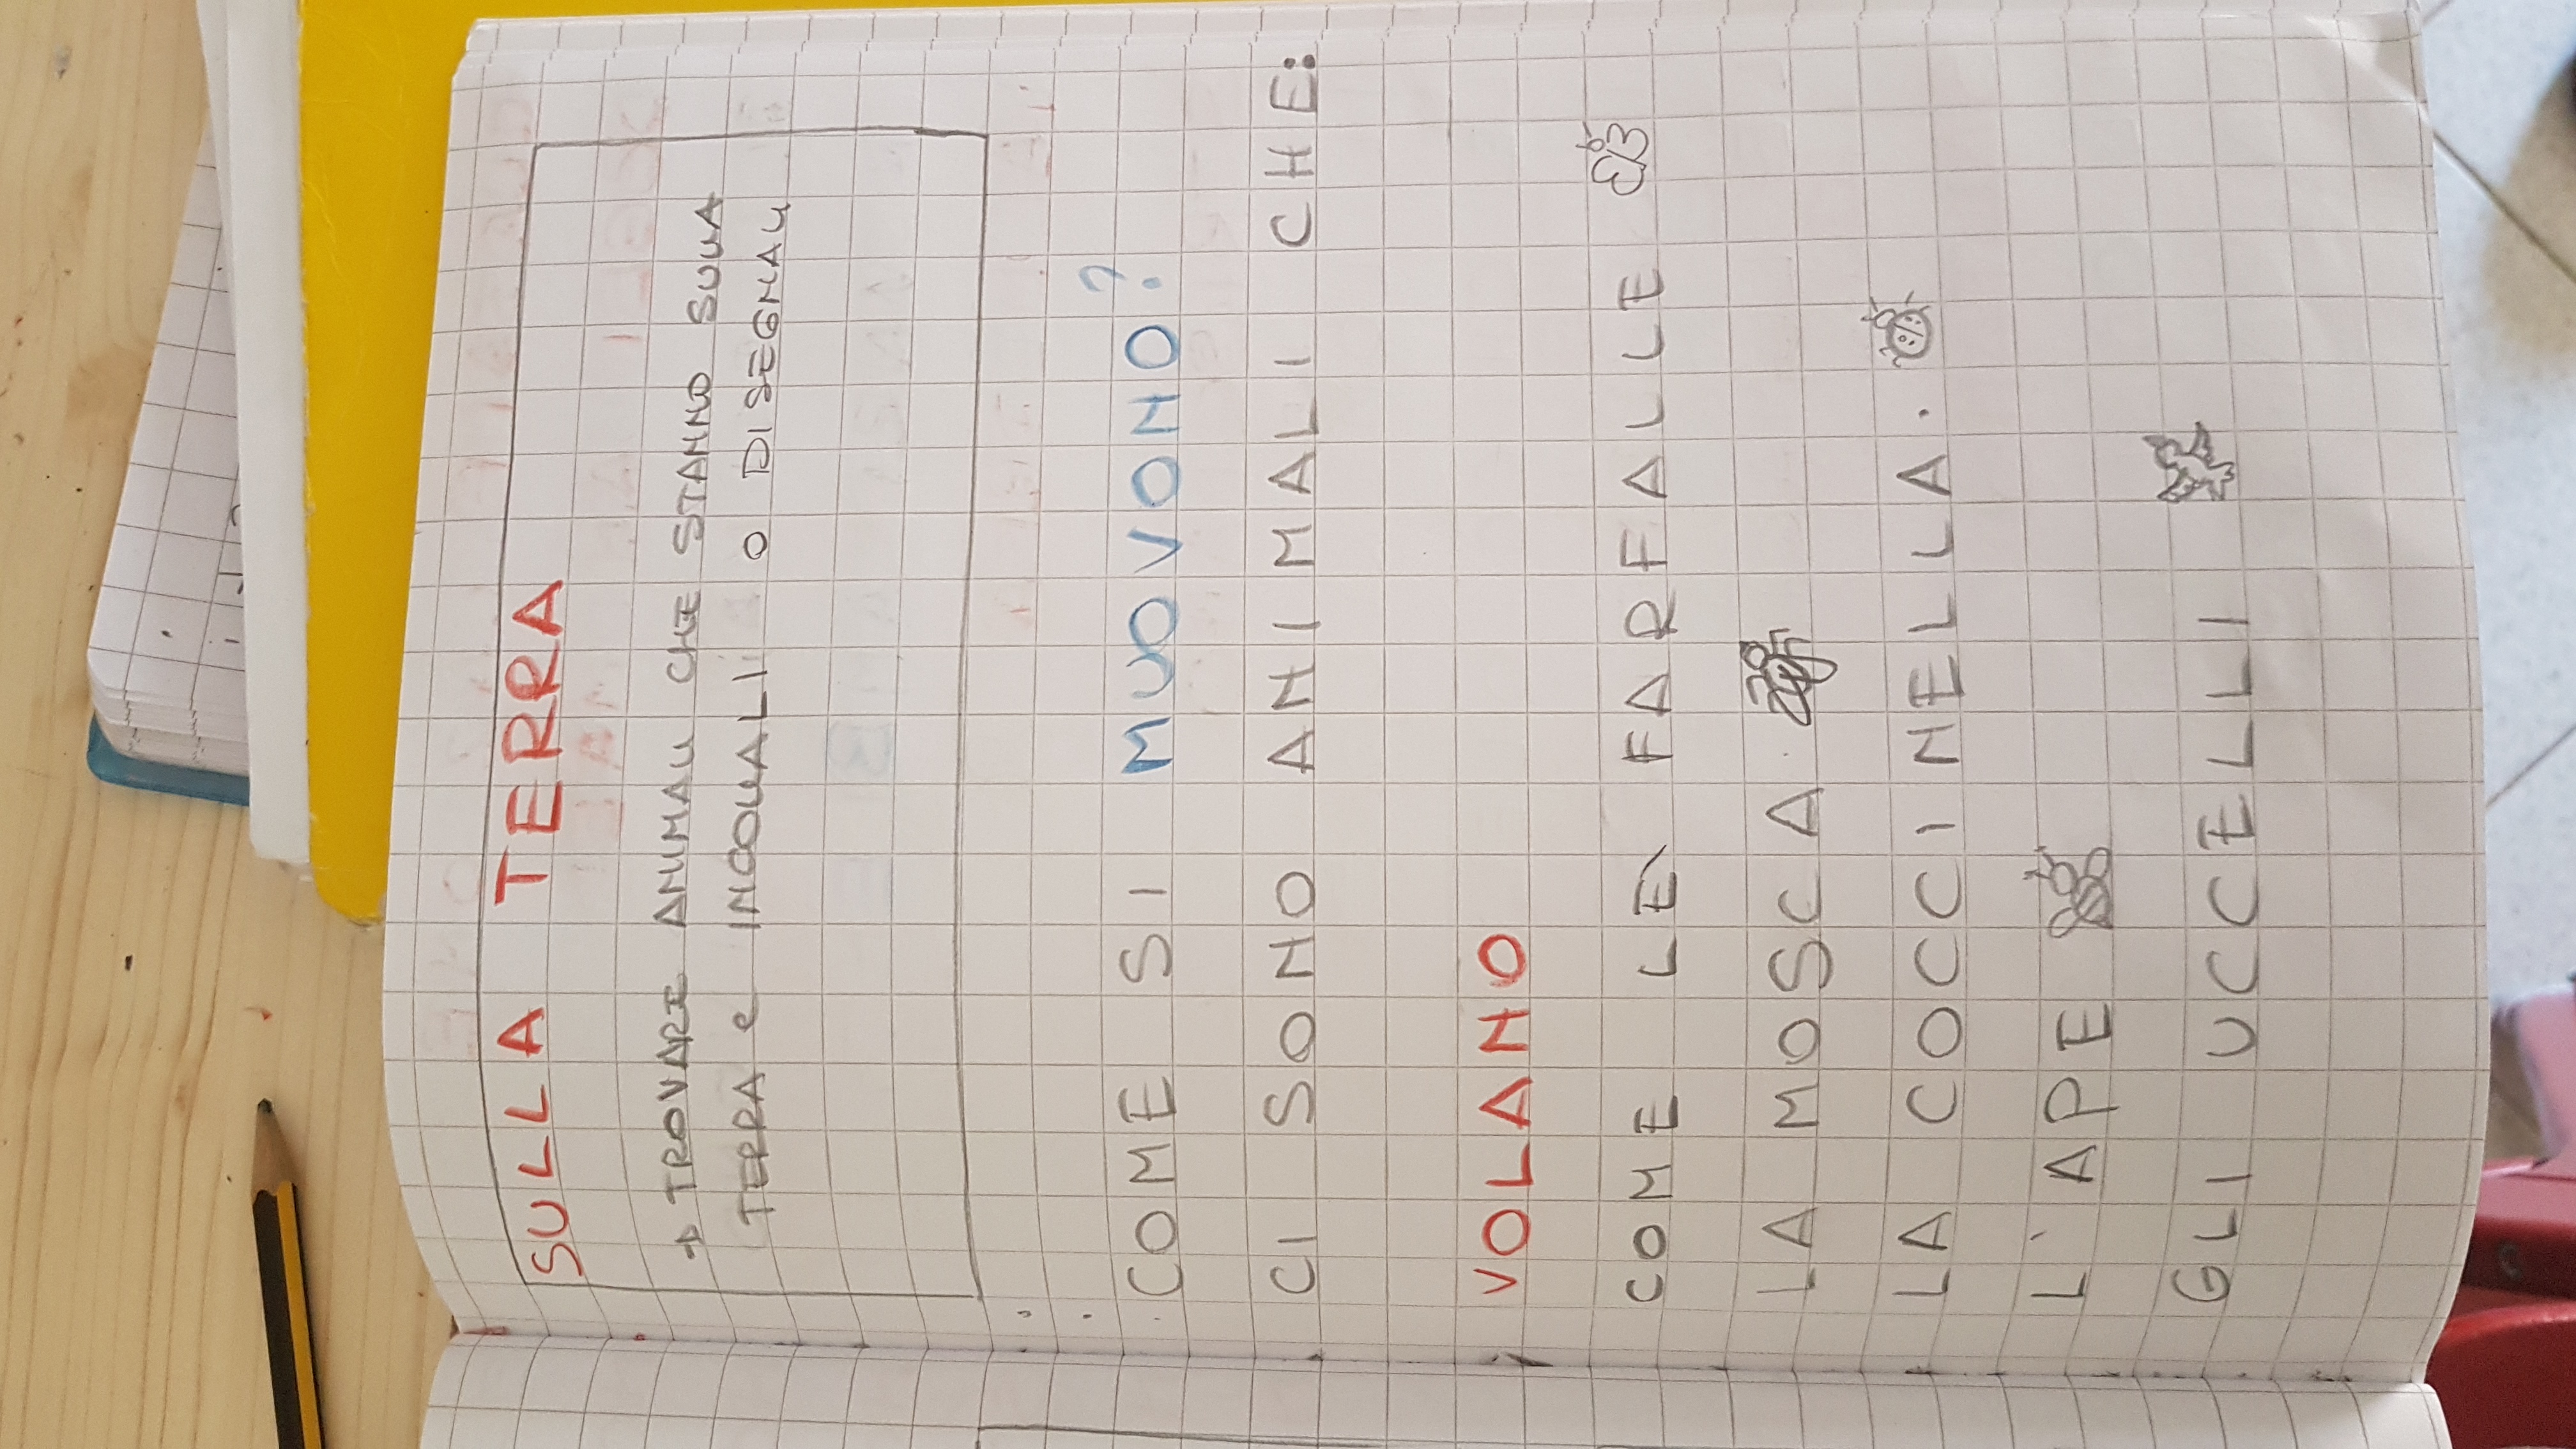 SULLA TERRA
→ TROVARE ANIMALI CHE STANNO SULLA
TERRA e INCOLLALI O DISEGNALI
COME SI MUOVONO?
CI SONO ANIMALI CHE:
VOLANO
COME LE FARFALLE
LA MOSCA
LA COCCINELLA.
L'APE
GLI UCCELLI